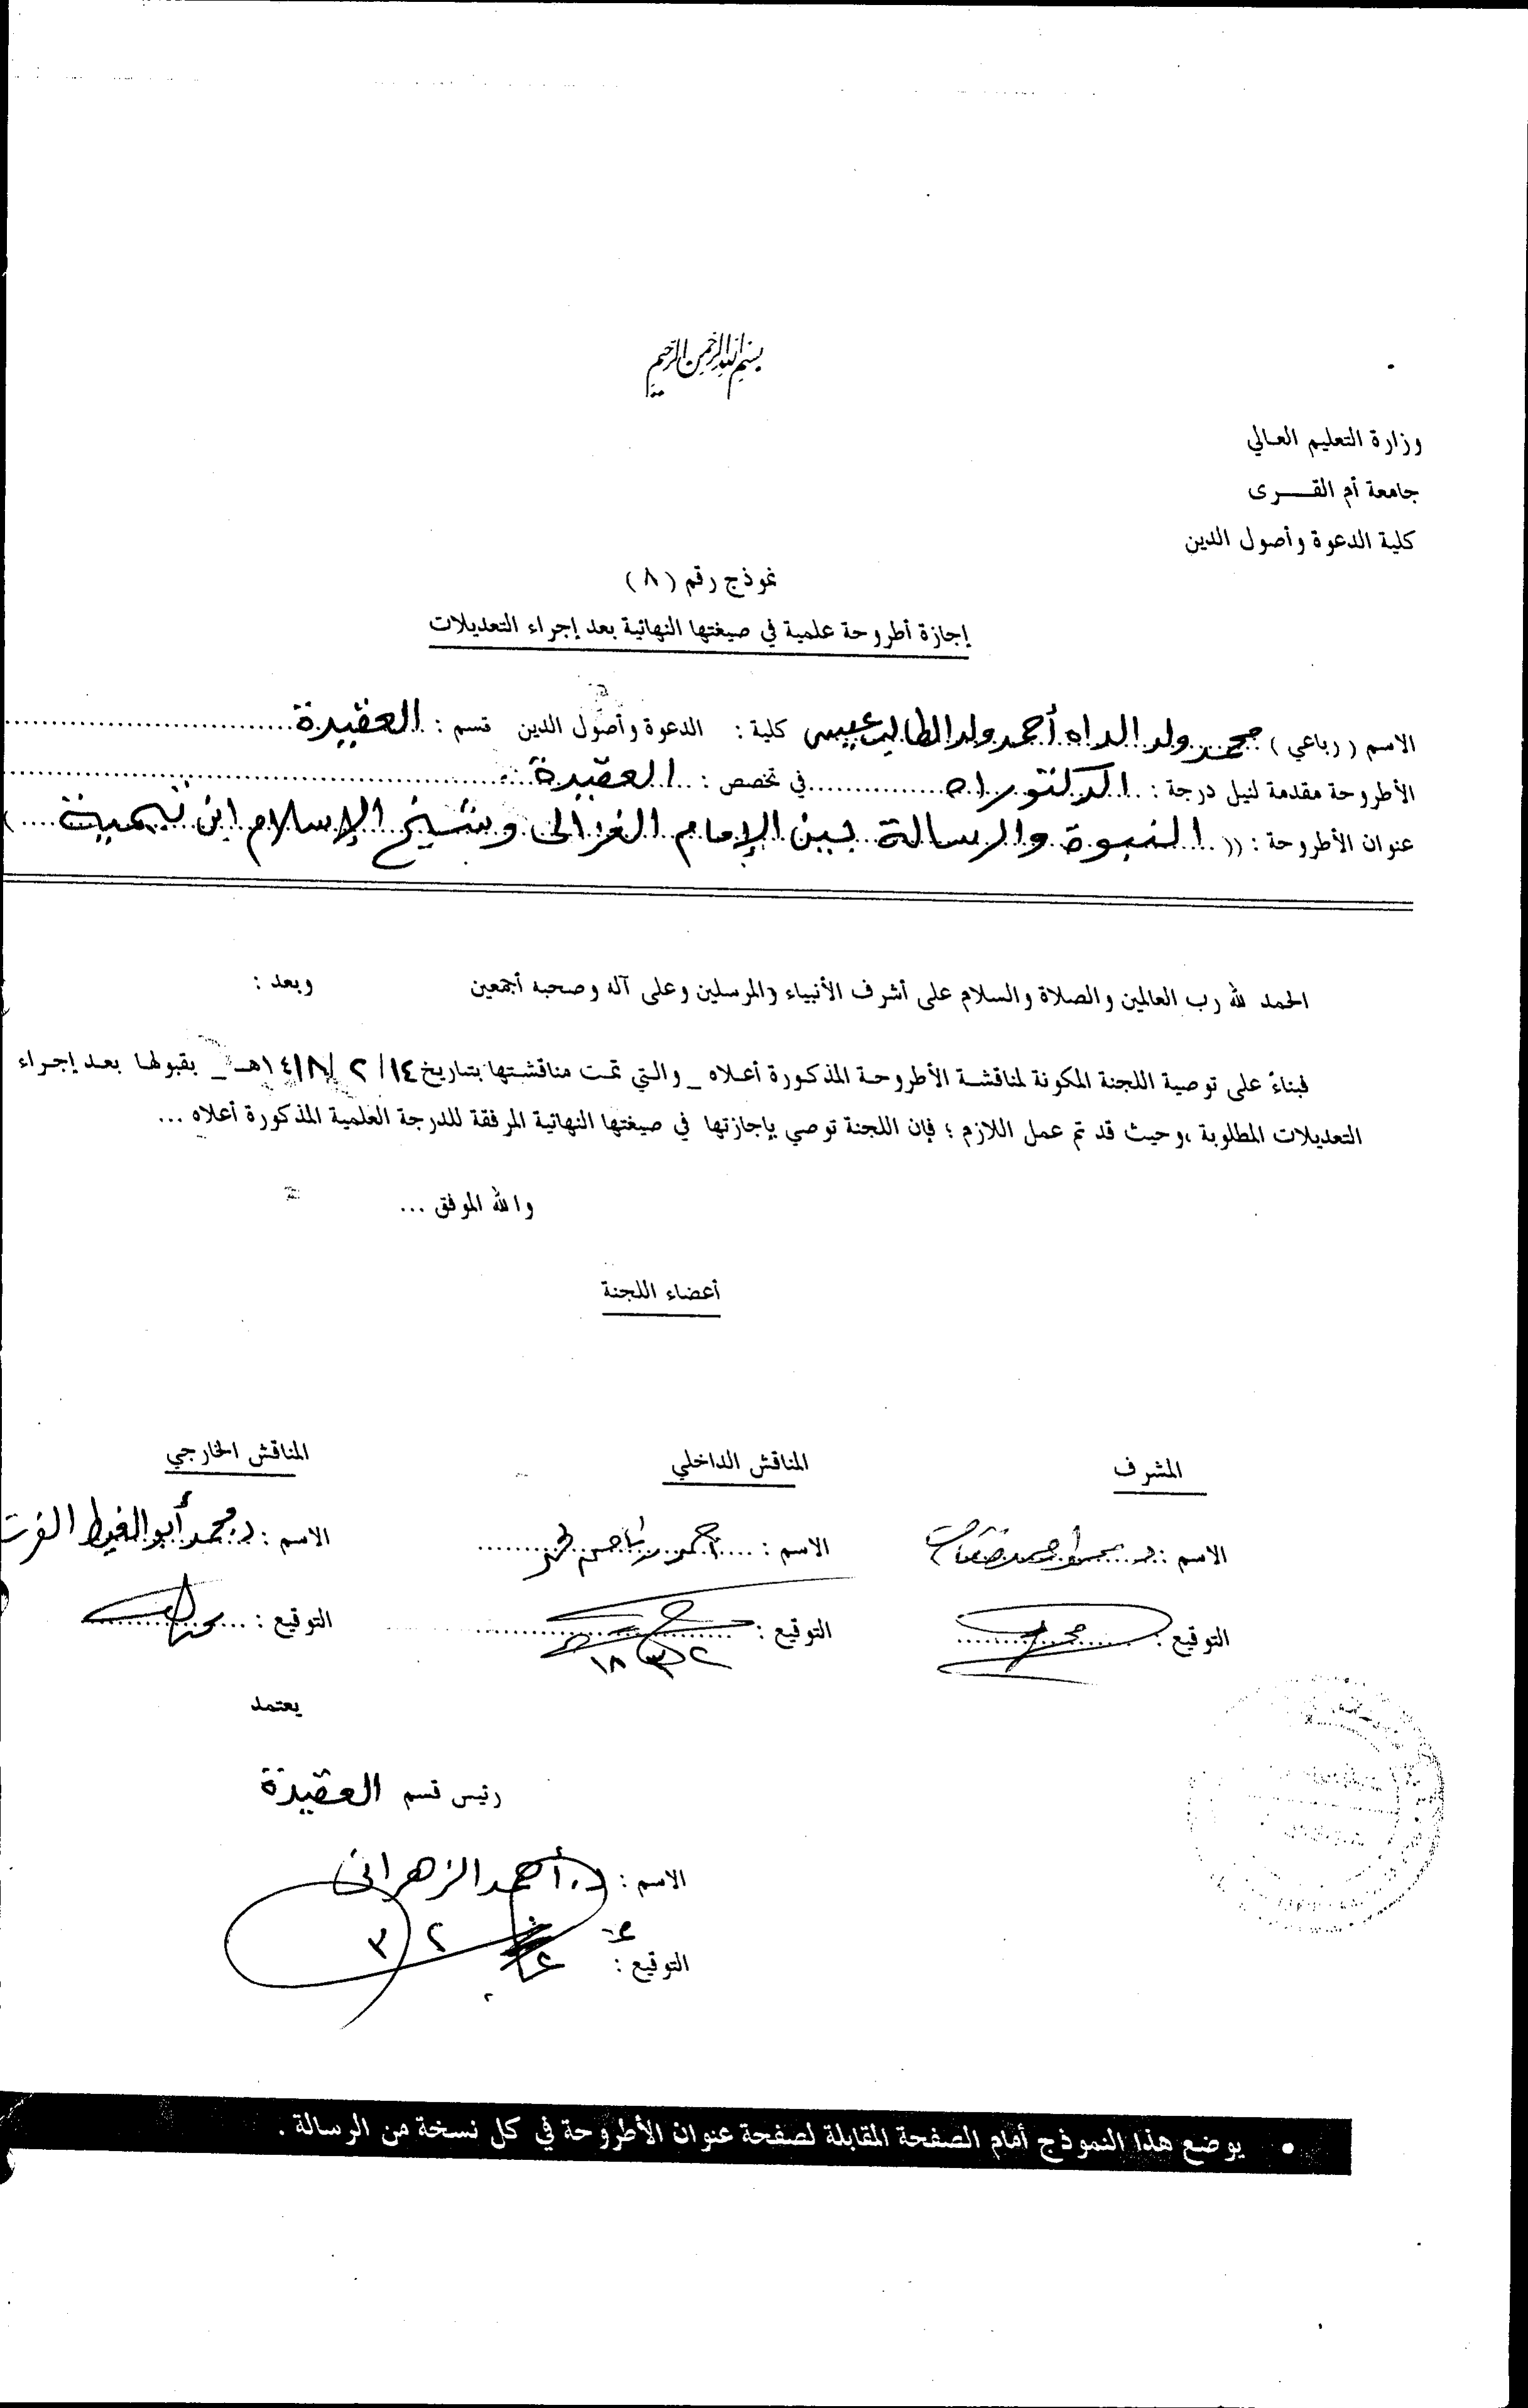 بسم الله الرحمن الرحيم
وزارة التعليم العالي
جامعة أم القـــرى
كلية الدعوة وأصول الدين
نموذج رقم (٨)
إجازة أطروحة علمية في صيغتها النهائية بعد إجراء التعديلات
الاسم (رباعي) محمد ولد الداه أحمد ولد الطالب عيسى كلية : الدعوة وأصول الدين قسم : العقيدة
الأطروحة مقدمة لنيل درجة : الدكتوراه في تخصص : العقيدة
عنوان الأطروحة : (( النبوة والرسالة بين الإمام الغزالى وشيخ الإسلام ابن تيمية )
الحمد لله رب العالمين والصلاة والسلام على أشرف الأنبياء والمرسلين وعلى آله وصحبه أجمعين وبعد :
فبناءً على توصية اللجنة المكونة لمناقشة الأطروحة المذكورة أعلاه _ والتي تمت مناقشتها بتاريخ ١٤/ ٢ /١٤١٨هـ _ بقبولها بعد إجراء
التعديلات المطلوبة ،وحيث قد تم عمل اللازم ؛ فإن اللجنة توصي بإجازتها في صيغتها النهائية المرفقة للدرجة العلمية المذكورة أعلاه ...
والله الموفق ...
أعضاء اللجنة
المشرف المناقش الداخلي المناقش الخارجي
الاسم : د. الاسم : أحمد الاسم : د. محمد أبو الغيط الفرت
التوقيع : التوقيع : التوقيع :
يعتمد
رئيس قسم العقيدة
الاسم : د. أحمد الزهرانى
التوقيع :
• يوضع هذا النموذج أمام الصفحة المقابلة لصفحة عنوان الأطروحة في كل نسخة من الرسالة .